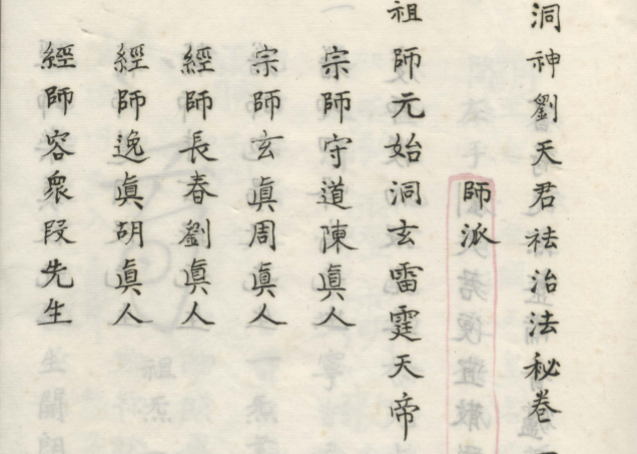 洞神劉天君祛治法秘卷一
師派
祖師元始洞玄雷霆天帝
宗師守道陳眞人
宗師玄眞周眞人
經師長春劉眞人
經師逸眞胡眞人
經師容衆段先生